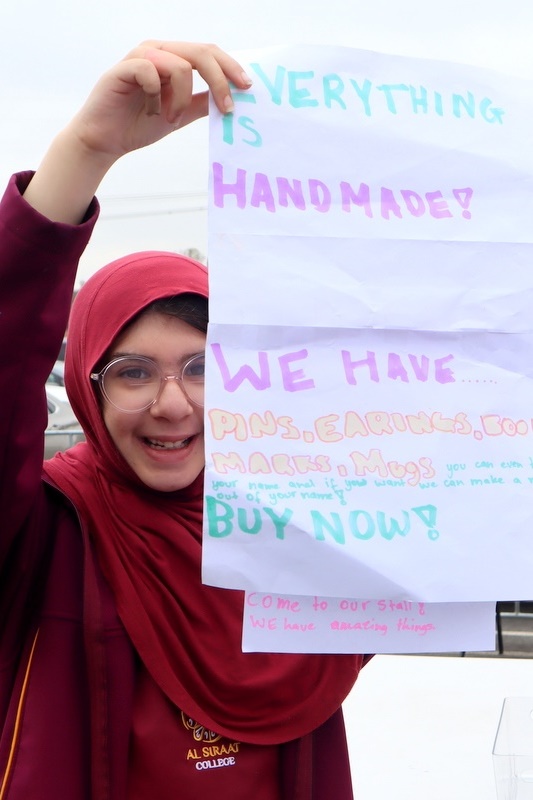 EVERYTHING
IS
HANDMADE!
WE HAVE......
PINS, EARINGS, BOO
MARKS, Mugs you can even
your name and if you want we can make a
out of your name!
BUY NOW!
Come to our stall!
WE have amazing things
AL SIRAAT
COLLEGE